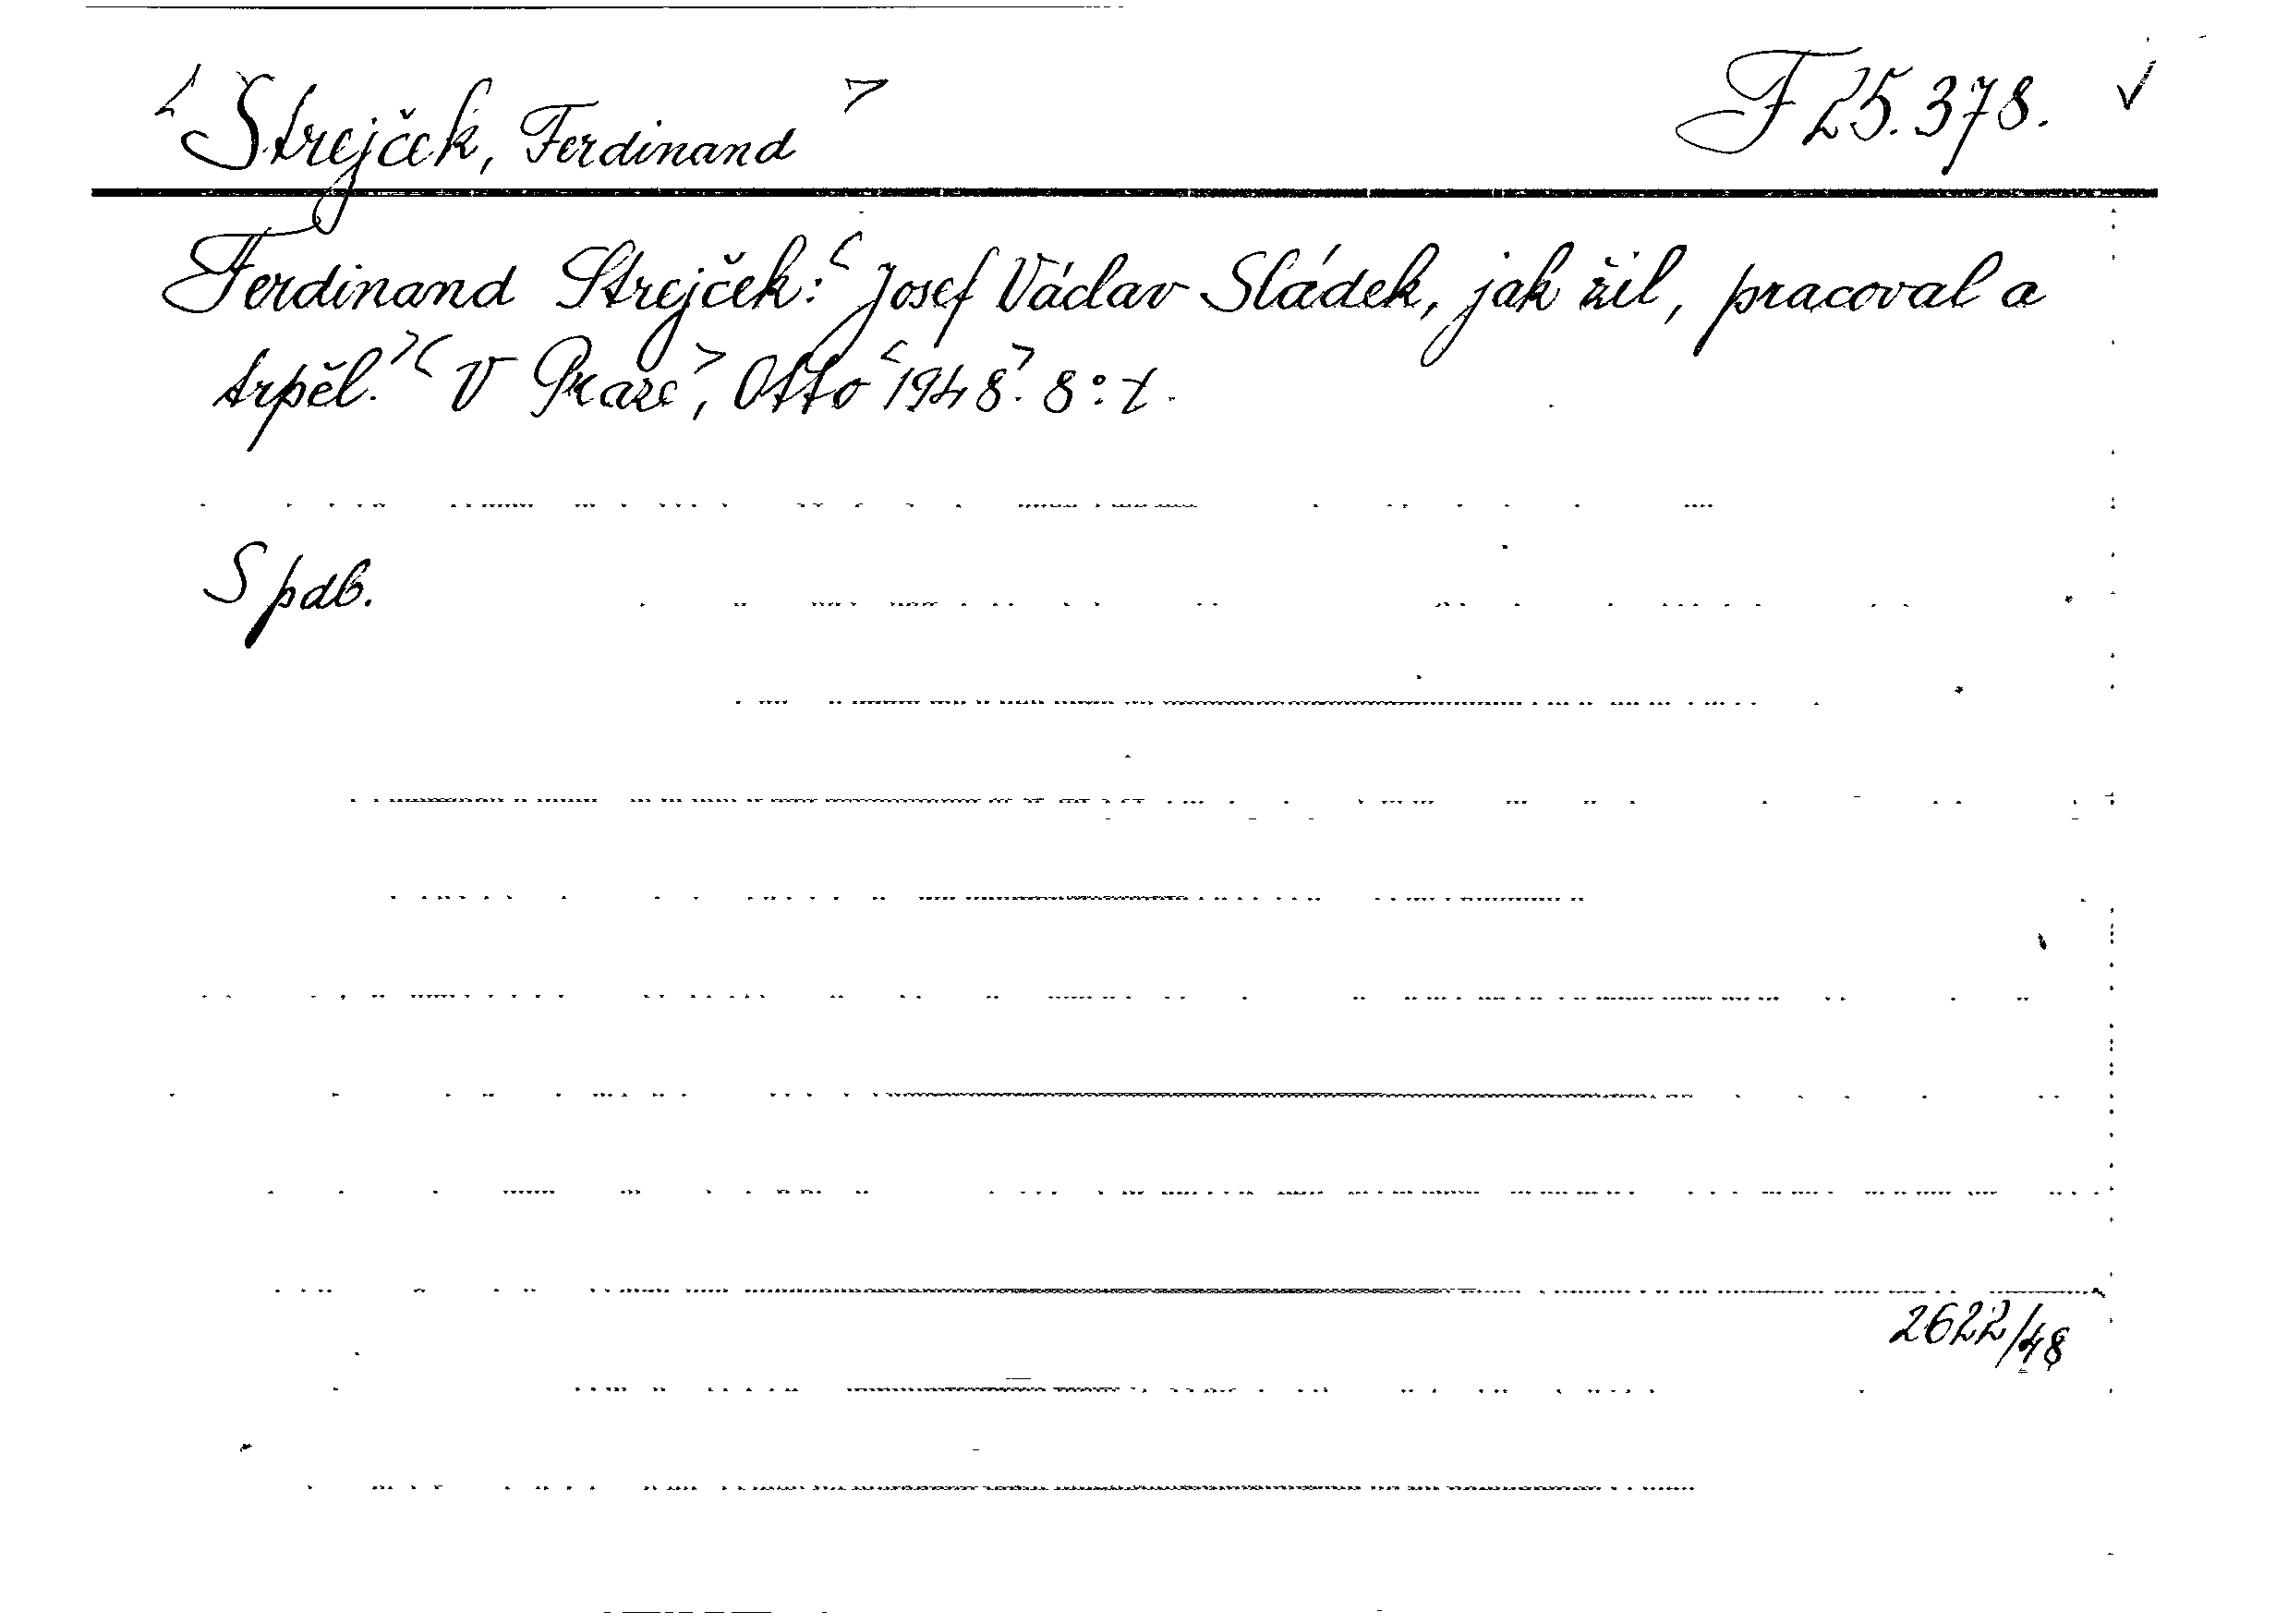 <Strejček, Ferdinand> F 25.378. ✓
Ferdinand Strejček: <Josef Václav Sládek, jak žil, pracoval a
trpěl.> <V Praze>, Otto <1948>. 8°:
S pdb.
2622/48